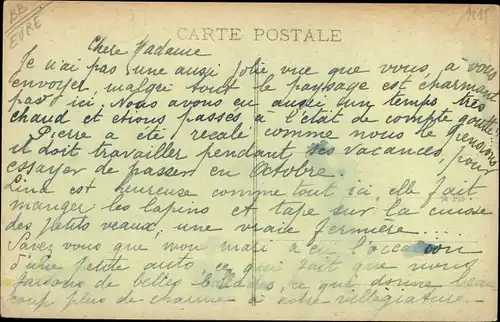 BB
EURE
CARTE POSTALE
Chere Madame
Je n'ai pas une aussi jolie vue que vous, à vous
envoyer, malgré tout le paysage est charmant
par ici. Nous avons eu aussi un temps très
chaud et étions passés à l'état de compte goutte
Pierre a été recalé comme nous le pensions
il doit travailler pendant ses vacances, pour
essayer de passer en Octobre.
Lina est heureuse comme tout ici, elle fait
manger les lapins et tape sur la cuisse
des petits veaux, une vraie fermière....
Savez vous que mon mari a eu l'occasion
d'une petite auto ce qui fait que nous
faisons de belles ballades, ce qui donne beau
coup plus de charme à notre villégiature.